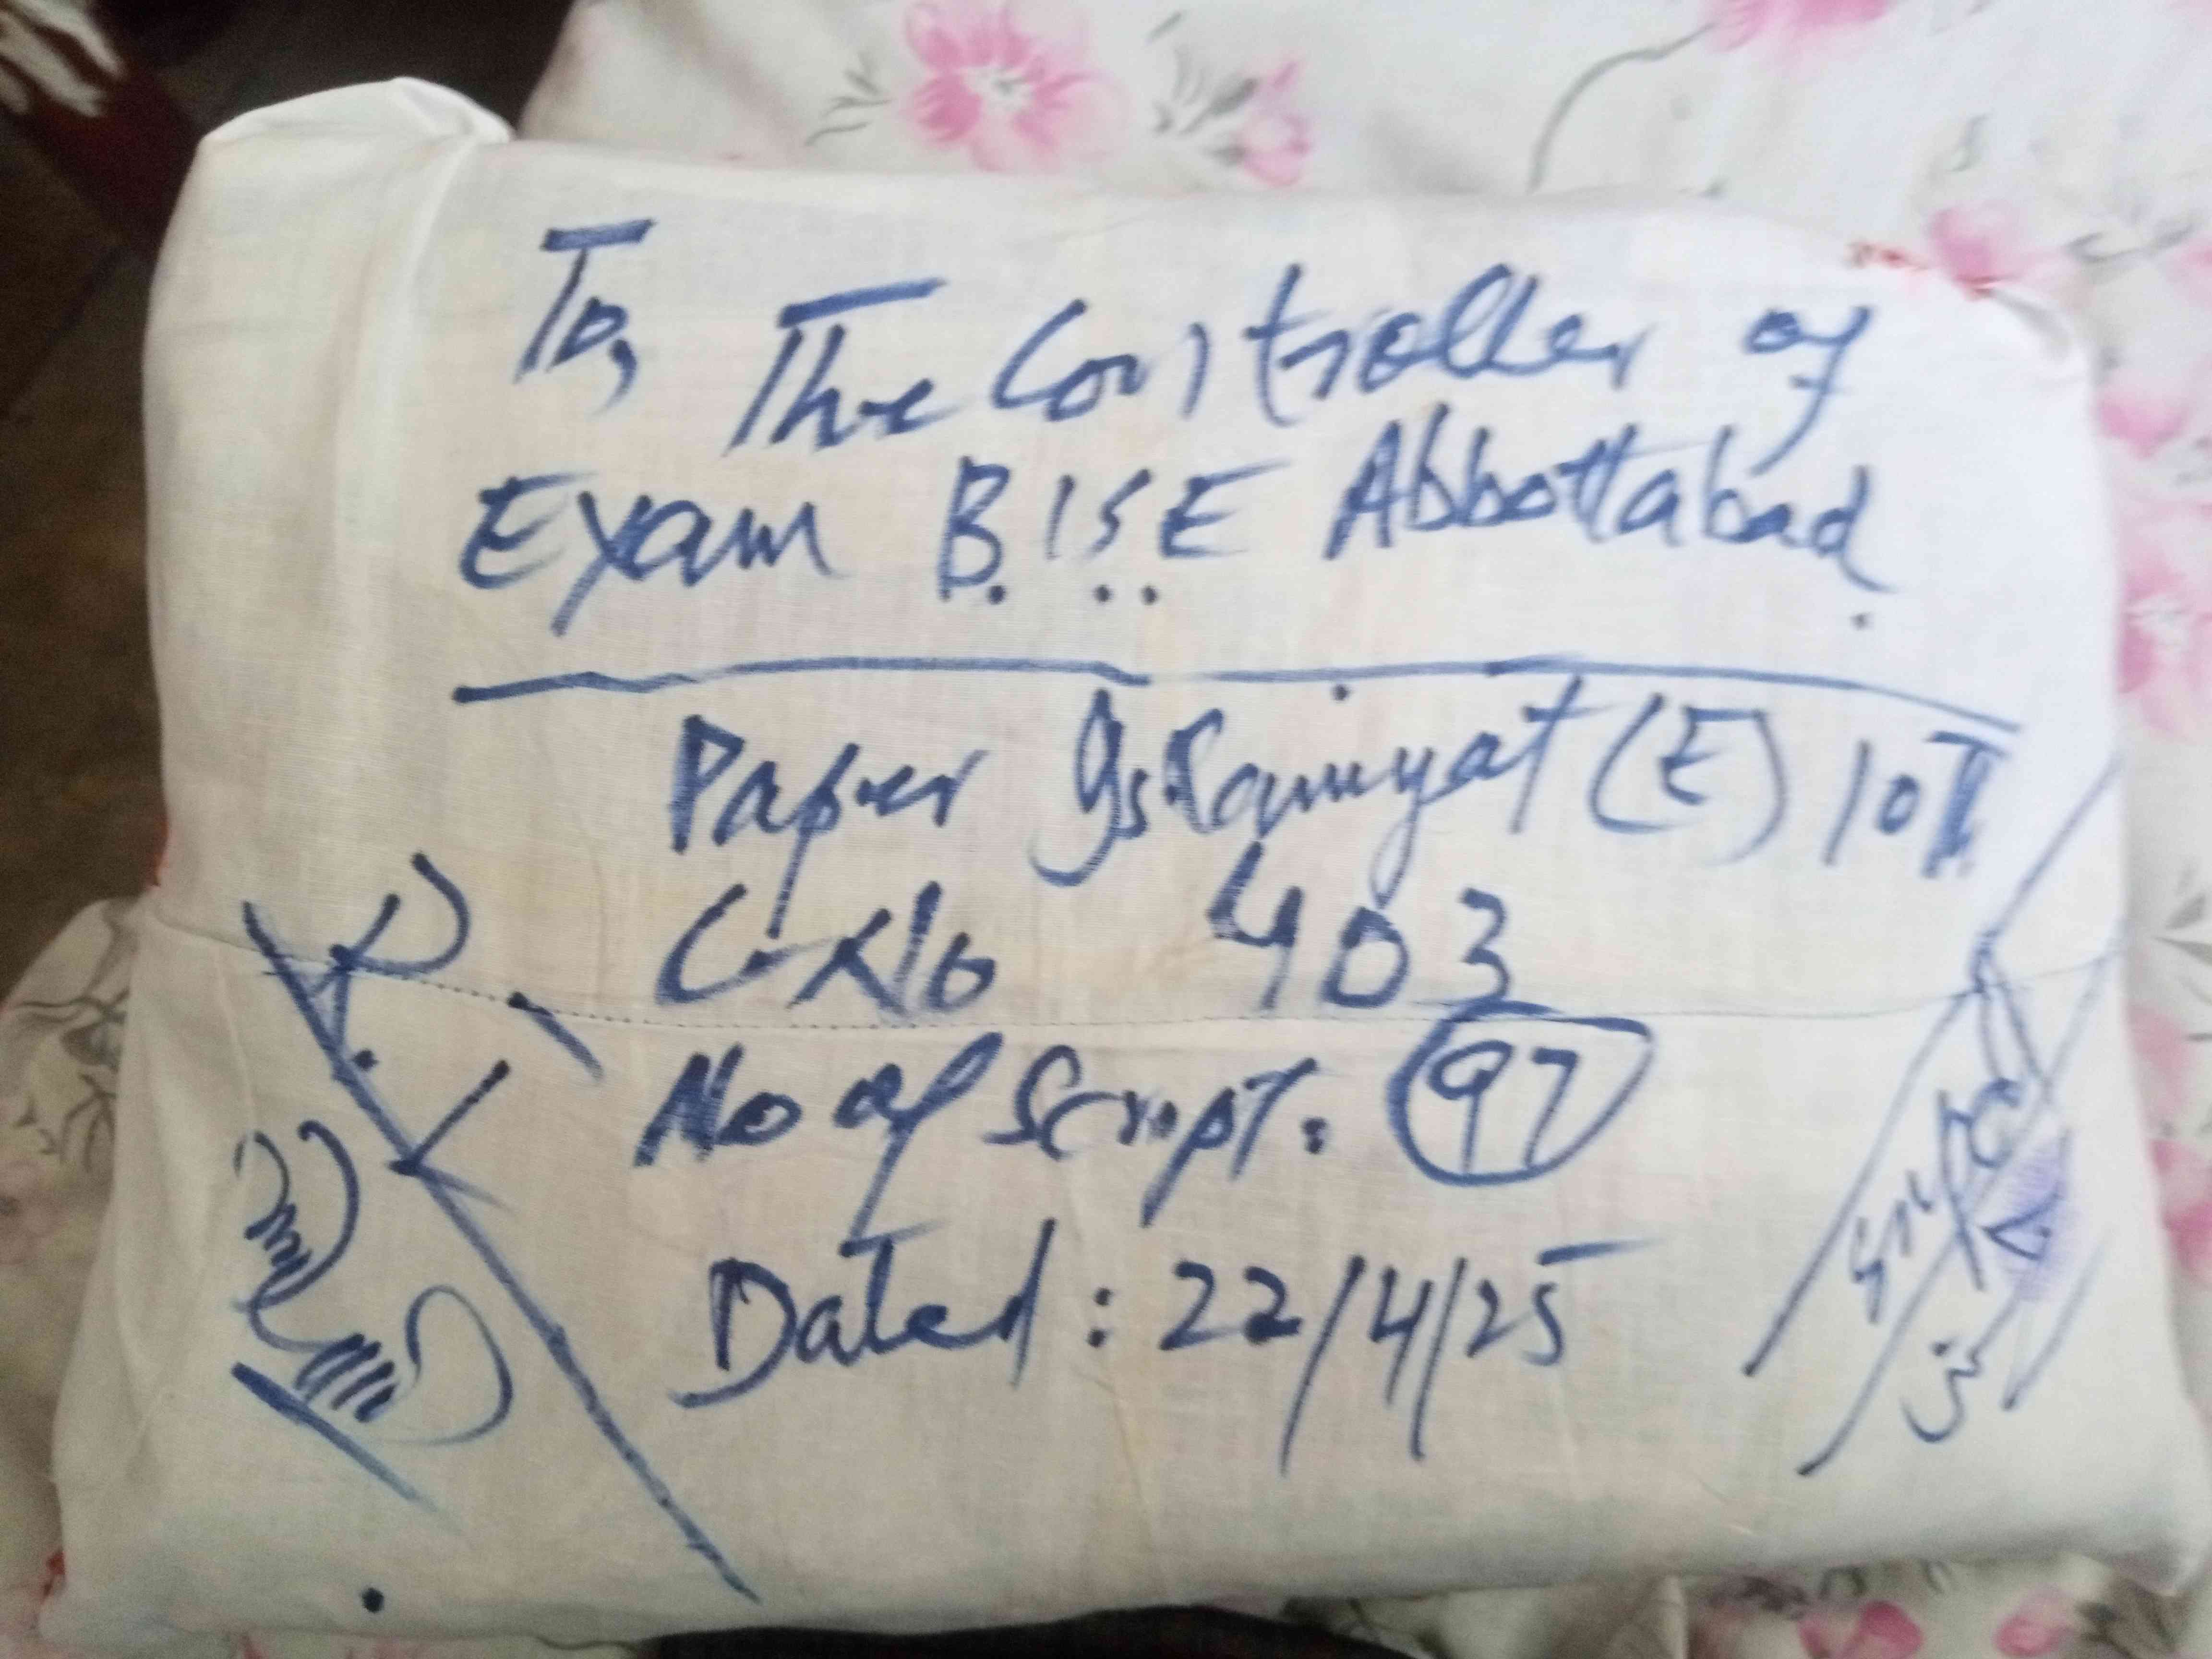 To, The Controller of
Exam B.I.S.E Abbottabad.
Paper Islamiyat (E) 10T
C. No 403
No of Script. 97
Dated: 22/4/25